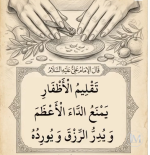 قَالَ الإِمَامُ عَلِيٌّ عَلَيْهِ السَّلَامُ
تَقْلِيمُ الْأَظْفَارِ
يَمْنَعُ الدَّاءَ الْأَعْظَمَ
وَ يُدِرُّ الرِّزْقَ وَ يُورِدُهُ